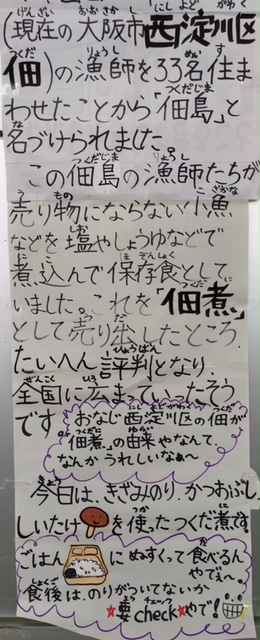 (現在の大阪市西淀川区
佃)の漁師を33名住ま
わせたことから「佃島」と
名づけられました。
この佃島の漁師たちが
売り物にならない小魚
などを塩やしょうゆなどで
煮込んで保存食として
いました。これを「佃煮」
として売り出したところ、
たいへん評判となり、
全国に広まっていったそう
です。
おなじ西淀川区の佃が
「佃煮」の由来やなんて、
なんかうれしいなぁ〜
今日は、きざみのり、かつおぶし、
しいたけを使ったつくだ煮です。
ごはんにぬすくって食べるん
やでぇ〜、
食後は、のりがついてないか
★要checkやで!